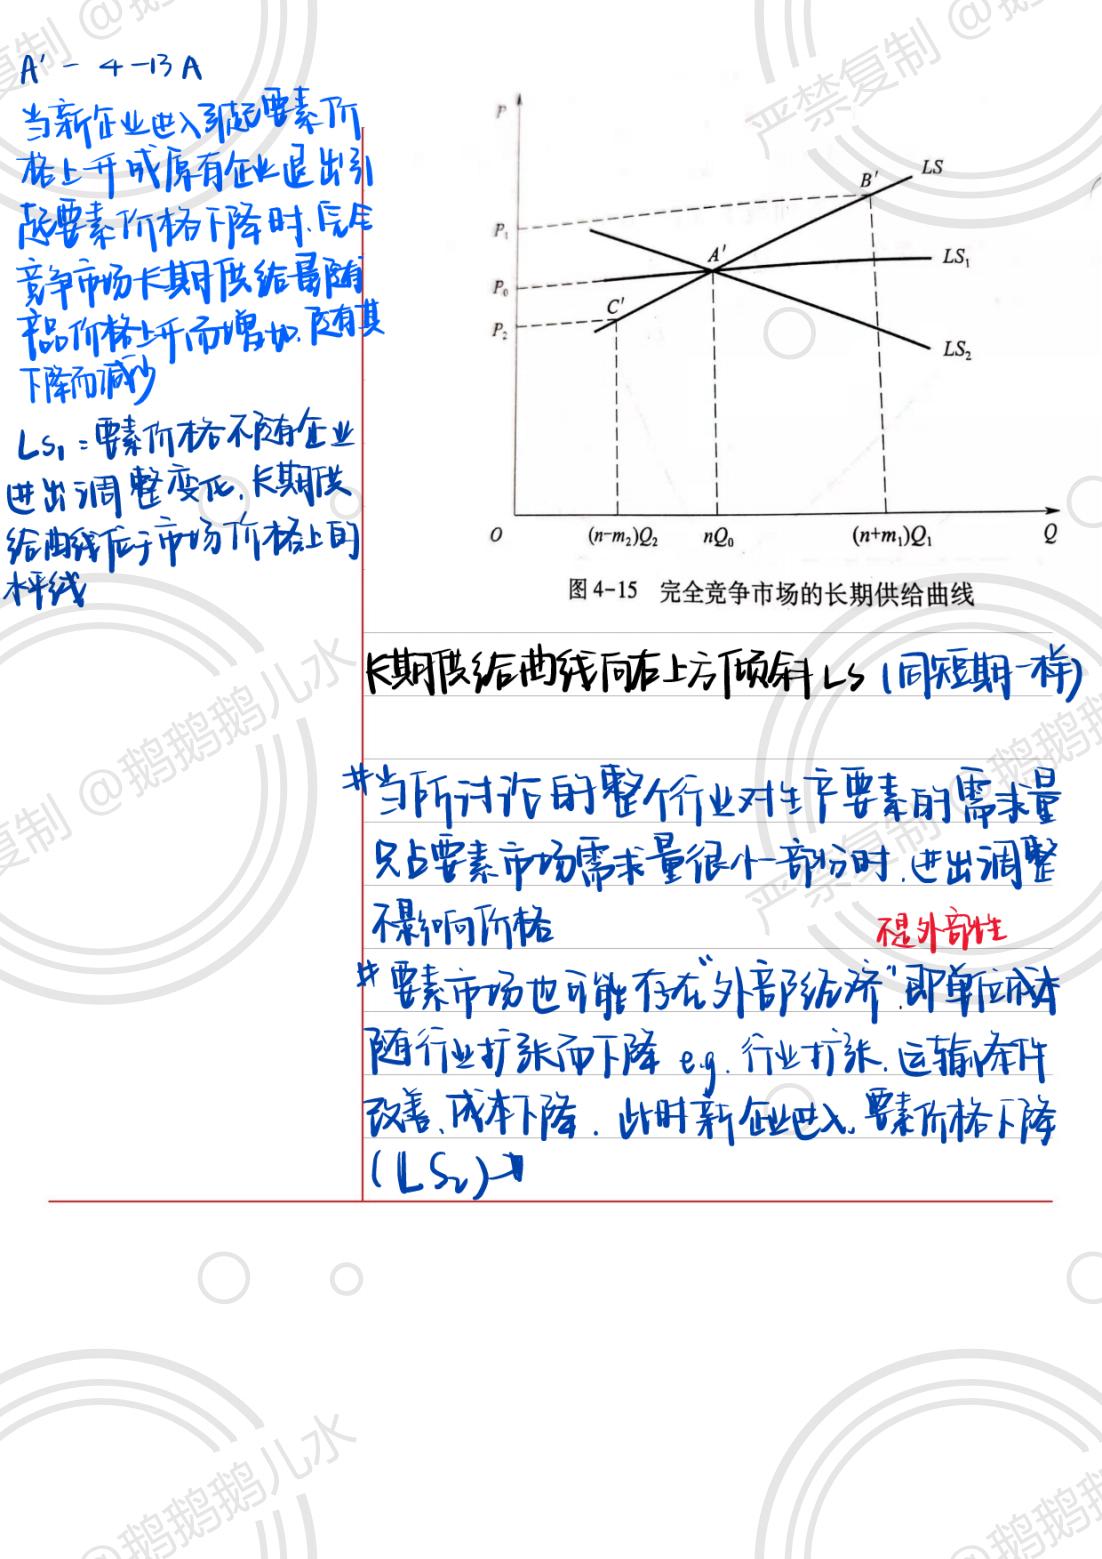 A' - 4-13 A
当新企业进入引起要素价
格上升或原有企业退出引
起要素价格下降时，完全
竞争市场长期供给量随
产品价格上升而增加，随其
下降而减少
LS₁：要素价格不随企业
进出调整变化，长期供
给曲线位于市场价格上的
水平线
P
P₁
P₀
P₂
O
A'
B'
C'
LS
LS₁
LS₂
(n-m₂)Q₂ nQ₀ (n+m₁)Q₁ Q
图 4-15 完全竞争市场的长期供给曲线
长期供给曲线向右上方倾斜 LS (同短期一样)
#当所讨论的整个行业对生产要素的需求量
只占要素市场需求量很小一部份时，进出调整
不影响价格
不是外部性
# 要素市场也可能存在“外部经济”，即单位成本
随行业扩张而下降 e.g. 行业扩张，运输条件
改善，成本下降．此时新企业进入，要素价格下降
(LS₂)→
严禁复制 @鹅鹅鹅儿水
严禁复制 @鹅鹅鹅儿水
复制 @鹅鹅鹅儿水
@鹅鹅鹅儿水